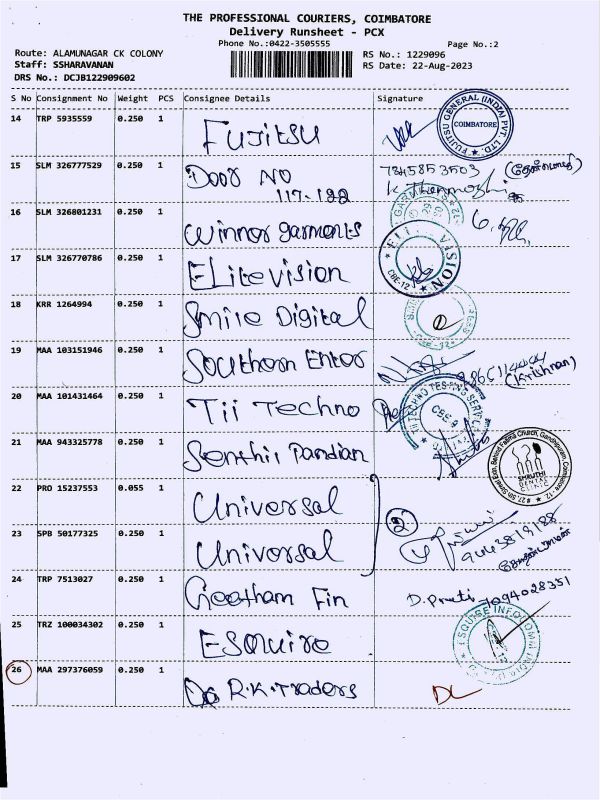 THE PROFESSIONAL COURIERS, COIMBATORE
Delivery Runsheet - PCX
Phone No.:0422-3505555
Page No.:2
Route: ALAMUNAGAR CK COLONY
RS No.: 1229096
Staff: SSHARAVANAN
RS Date: 22-Aug-2023
DRS No.: DCJB122909602
S No Consignment No Weight PCS Consignee Details Signature
14 TRP 5935559 0.250 1 FUJITSU
FUJITSU GENERAL (INDIA) PVT. LTD. COIMBATORE
15 SLM 326777529 0.250 1 Door NO 7345853503
117-122
16 SLM 326801231 0.250 1 Winner garments
17 SLM 326770786 0.250 1 ELitevision
VISION CBE-12
18 KRR 1264994 0.250 1 Smile Digital
19 MAA 103151946 0.250 1 Southern Enter
(Krishnan)
20 MAA 101431464 0.250 1 Tii Techno
21 MAA 943325778 0.250 1 Senthil Pandian
SHRUTHI DENTAL CLINIC
22 PRO 15237553 0.055 1 Universal
2
23 SPB 50177325 0.250 1 Universal
24 TRP 7513027 0.250 1 Geetham Fin D. Preeti 7094028351
25 TRZ 100034302 0.250 1 ESquire
26 MAA 297376059 0.250 1 R.K.Traders DL